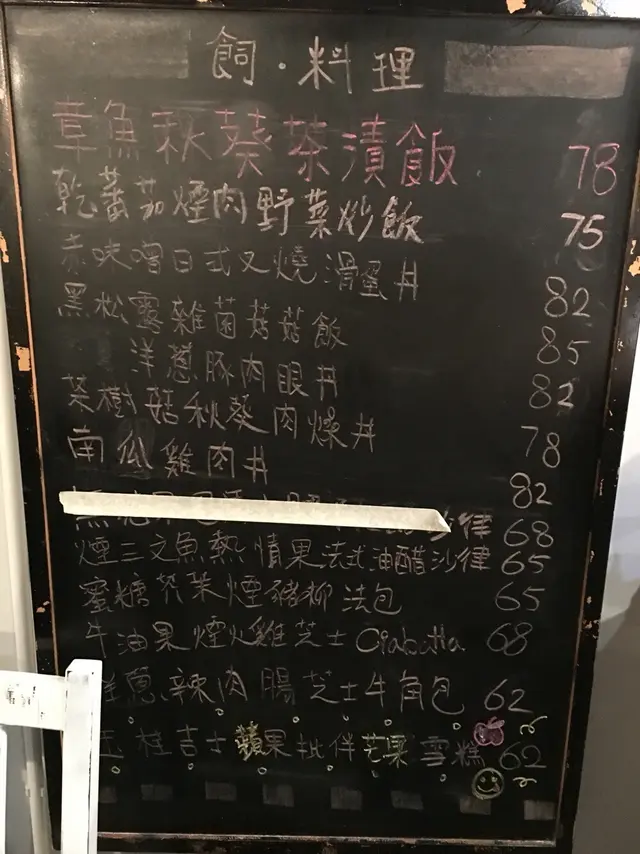 飼·料理
章魚秋葵茶漬飯 78
乾蕃茄煙肉野菜炒飯 75
赤味噌日式叉燒滑蛋丼 82
黑松露雜菌菇菇飯 85
洋蔥豚肉眼丼 82
茶樹菇秋葵肉燥丼 78
南瓜雞肉丼 82
沙律 68
煙三文魚熱情果法式油醋沙律 65
蜜糖芥菜煙豬柳法包 65
牛油果煙火雞芝士Ciabatta 68
洋蔥辣肉腸芝士牛角包 62
玉桂吉士蘋果批伴芒果雪糕 62